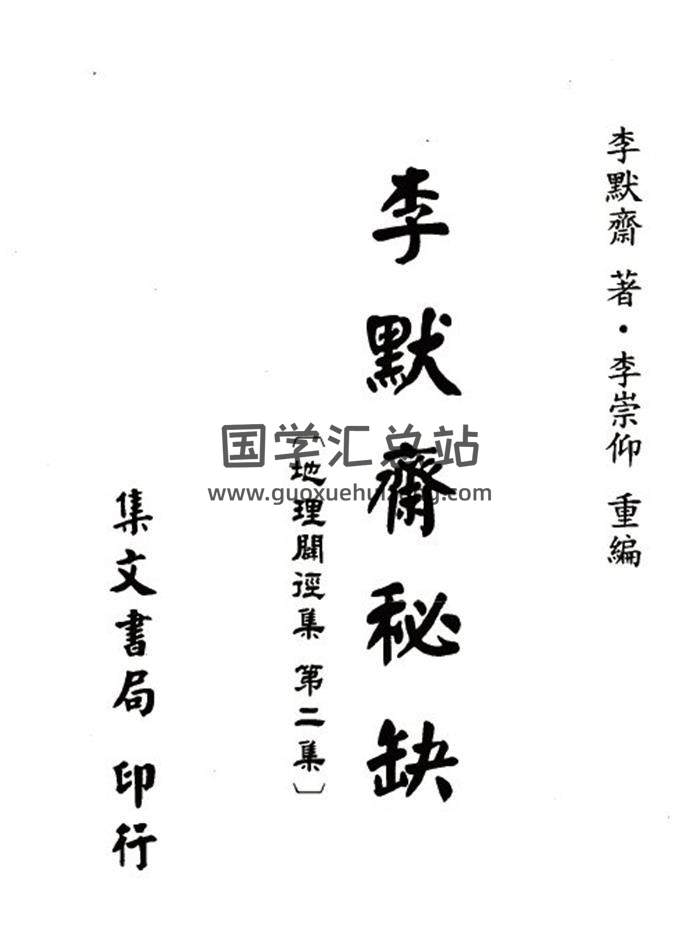 李默齋 著·李崇仰 重編
李默齋秘缺
〔地理闢徑集 第二集〕
集文書局 印行
国学汇总站
www.guoxuehuizong.com